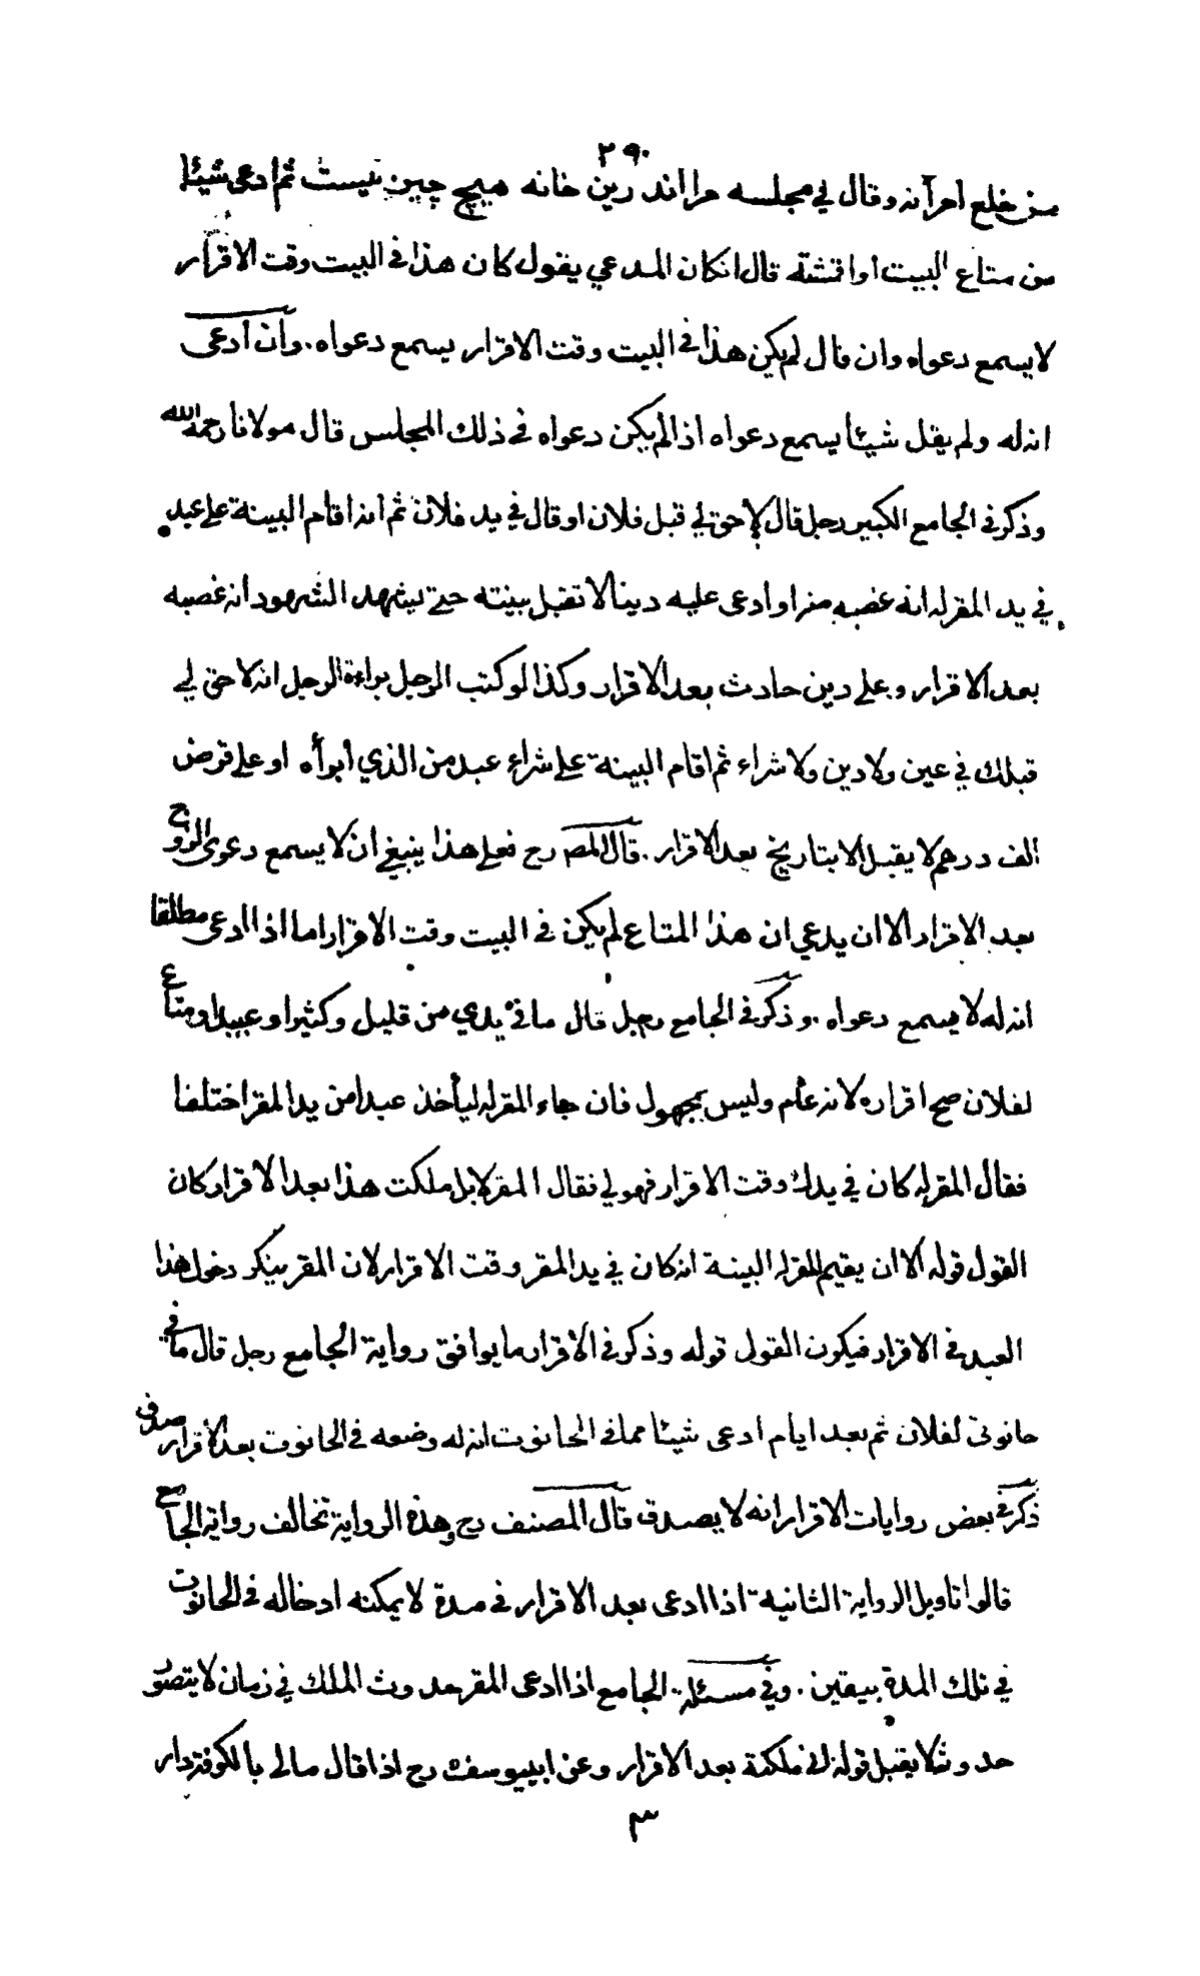 ٢٩٠
من خلع امرأته وقال في مجلسه مرا اندرين خانه هيچ چيز نيست ثم ادعى شيئا
من متاع البيت او اقمشته قال ان كان المدعي يقول كان هذا في البيت وقت الاقرار
لا يسمع دعواه وان قال لم يكن هذا في البيت وقت الاقرار يسمع دعواه . وان ادعى
انه له ولم يقل شيئا يسمع دعواه اذا لم يكن دعواه في ذلك المجلس قال مولانا رحمه الله
وذكر في الجامع الكبير رجل قال لا حق لي قبل فلان او قال في يد فلان ثم انه اقام البينة على عبد
في يد المقر له انه غصبه منه او ادعى عليه دينا لا تقبل بينته حتى يشهد الشهود انه غصبه
بعد الاقرار وعلى دين حادث بعد الاقرار وكذا لو كتب الرجل براءة الرجل انه لا حق لي
قبلك في عين ولا دين ولا شراء ثم اقام البينة على شراء عبد من الذي أبرأه او على قرض
الف درهم لا يقبل الا بتاريخ بعد الاقرار . قال المص رح فعلى هذا ينبغي ان لا يسمع دعوى الزوج
بعد الاقرار الا ان يدعي ان هذا المتاع لم يكن في البيت وقت الاقرار اما اذا ادعى مطلقا
انه له لا يسمع دعواه . وذكر في الجامع رجل قال ما في يدي من قليل وكثير او عبيد او متاع
لفلان صح اقراره لانه عام وليس بمجهول فان جاء المقر له ليأخذ عبدا من يد المقر اختلفا
فقال المقر له كان في يدك وقت الاقرار فهو لي فقال المقر لا بل ملكت هذا بعد الاقرار كان
القول قوله الا ان يقيم المقر له البينة انه كان في يد المقر وقت الاقرار لان المقر ينكر دخول هذا
العبد في الاقرار فيكون القول قوله وذكر في الاقرار ما يوافق رواية الجامع رجل قال ما في
حانوتي لفلان ثم بعد ايام ادعى شيئا مما في الحانوت انه له وضعه في الحانوت بعد الاقرار صدق
ذكر في بعض روايات الاقرار انه لا يصدق قال المصنف رح وهذه الرواية تخالف رواية الجامع
قالوا تاويل الرواية الثانية اذا ادعى بعد الاقرار في مدة لا يمكنه ادخاله في الحانوت
في تلك المدة بيقين . وفي مسئلة الجامع اذا ادعى المقر حدوث الملك في زمان لا يتصور
حدوثه لا يقبل قوله اني ملكته بعد الاقرار وعن ابي يوسف رح اذا قال مالي بالكوفة دار
٣